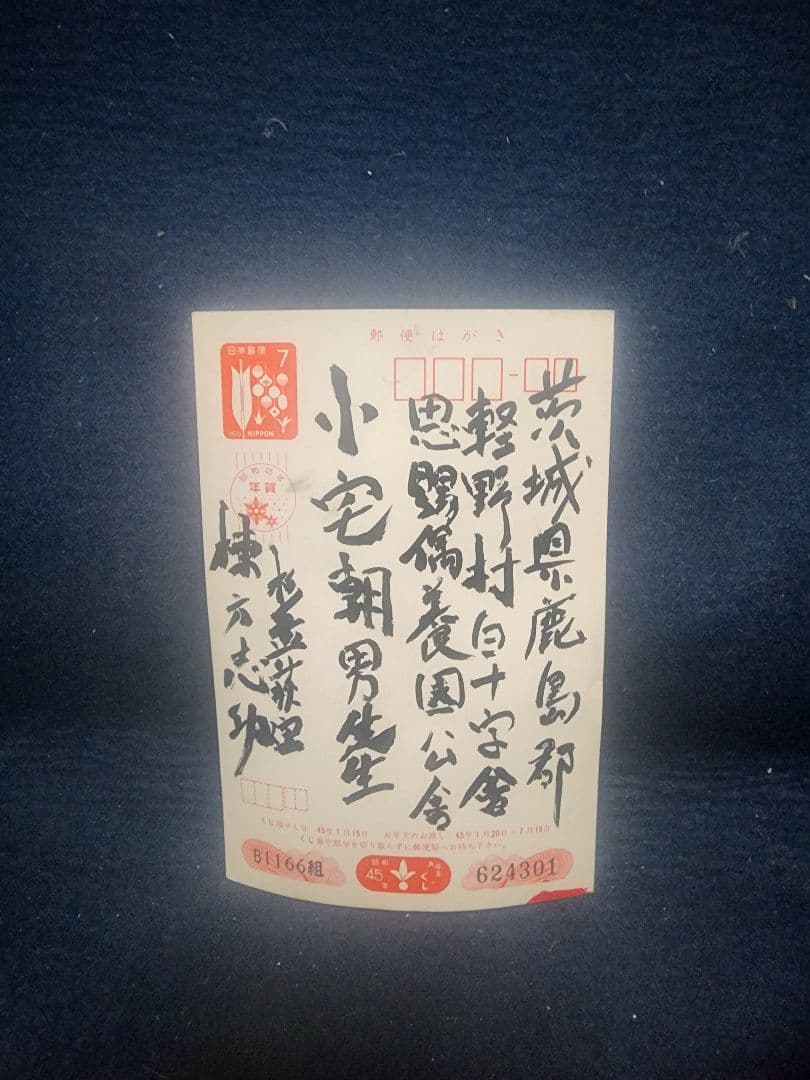 郵便はがき
日本郵便 7
NIPPON
昭和45年
年賀
茨城県鹿島郡
軽野村白十字舎
恩賜保養園公舎
小宅朝男先生
杉並荻窪
棟方志功
くじ引き 45年1月15日 お年玉のお渡し 45年1月20日−7月19日
くじ番号部分を切り取らずに郵便局へお持ち下さい。
B1166組
昭和45年
お年玉くじ
624301